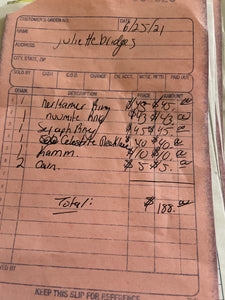 CUSTOMER'S ORDER NO. DATE 6/25/21
NAME juliette bridges
ADDRESS
CITY, STATE, ZIP
SOLD BY CASH C.O.D. CHARGE ON. ACCT. MDSE. RETD. PAID OUT
QUAN. DESCRIPTION PRICE AMOUNT
1 Ring $45. $45.00
1 Ring $43 $43.00
1 Ring $45 $45.00
1 Celestite Necklace $40 $40.00
1 hamm. $10 $10.00
2 $5 $5.00
Total: $188.00
KEEP THIS SLIP FOR REFERENCE